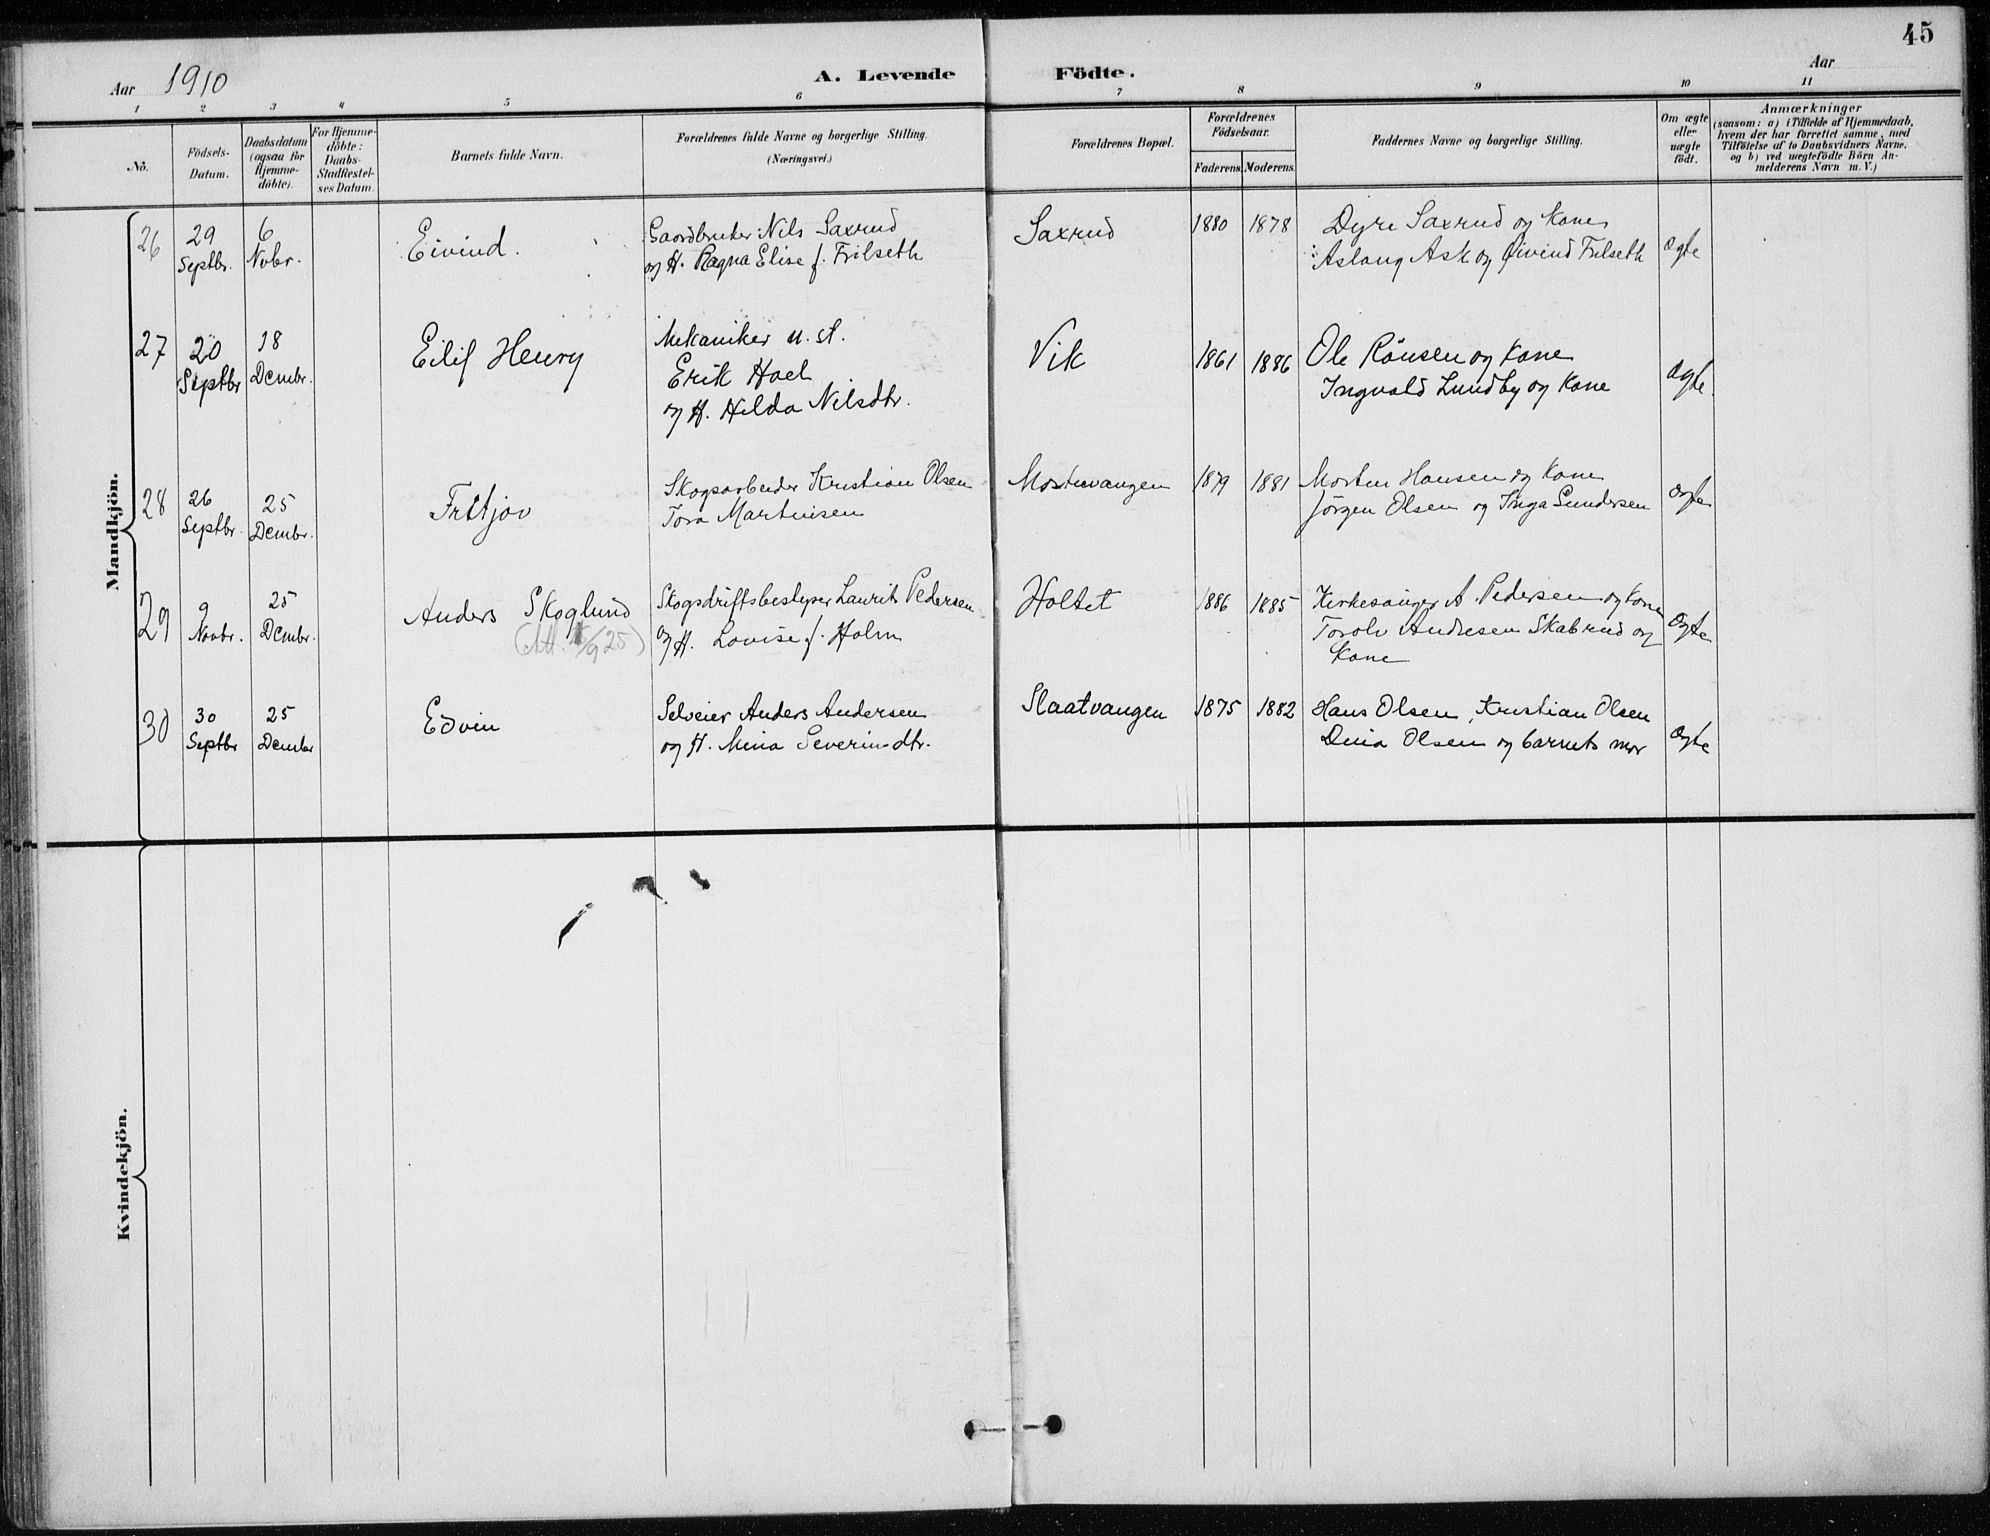 45
Aar 1910
A. Levende Födte.
Aar
1 2 3 4 5 6 7 8 9 10 11
No.
Födsels-
Datum.
Daabsdatum
(ogsaa for
Hjemme-
döbte).
For Hjemme-
döbte:
Daabs-
Stadfæstel-
ses Datum.
Barnets fulde Navn.
Forældrenes fulde Navne og borgerlige Stilling.
(Næringsvei.)
Forældrenes Bopæl.
Forældrenes
Födselsaar.
Faderens.
Moderens.
Faddernes Navne og borgerlige Stilling.
Om ægte
eller
uægte
födt.
Anmærkninger
(saasom: a) i Tilfælde af Hjemmedaab,
hvem der har forrettet samme, med
Tilföielse af to Daabsvidners Navne,
og b) ved uægtefödte Börn An-
melderens Navn m. V.)
Mandkjön.
26
29
Septbr.
6
Nobr.
Eivind.
Gaardbruker Nils Saxrud
og H. Ragna Elise f. Frilseth
Saxrud
1880
1878
Dyre Saxrud og Kone
Aslaug Ask og Öivind Frilseth
ægte
27
20
Septbr
18
Dcmbr.
Eilif Henry
Mekaniker u. st.
Erik Hoel
og H. Hilda Nilsdtr.
Vik
1861
1886
Ole Rönsen og Kone
Ingvald Lundby og Kone
ægte
28
26
Septbr.
25
Dcmbr.
Fritjov
Skogsarbeider Kristian Olsen
Tora Martinsen
Mostuevangen
1879
1881
Morten Hansen og Kone
Jörgen Olsen og Inga Gundersen
ægte
29
9
Novbr.
25
Dcmbr.
Anders Skoglund
Skogsdriftsbestyrer Laurits Pedersen
og H. Lovise f. Holm
Holtet
1886
1885
Kirkesanger A. Pedersen og Kone
Torolv Andresen Skabrud og
Kone
ægte
30
30
Septbr
25
Dcmbr
Edvin
Selveier Anders Andersen
og H. Mina Severinsdtr.
Slaatvangen
1875
1882
Hans Olsen, Kristian Olsen
Dina Olsen og barnets mor
ægte
Kvindekjön.